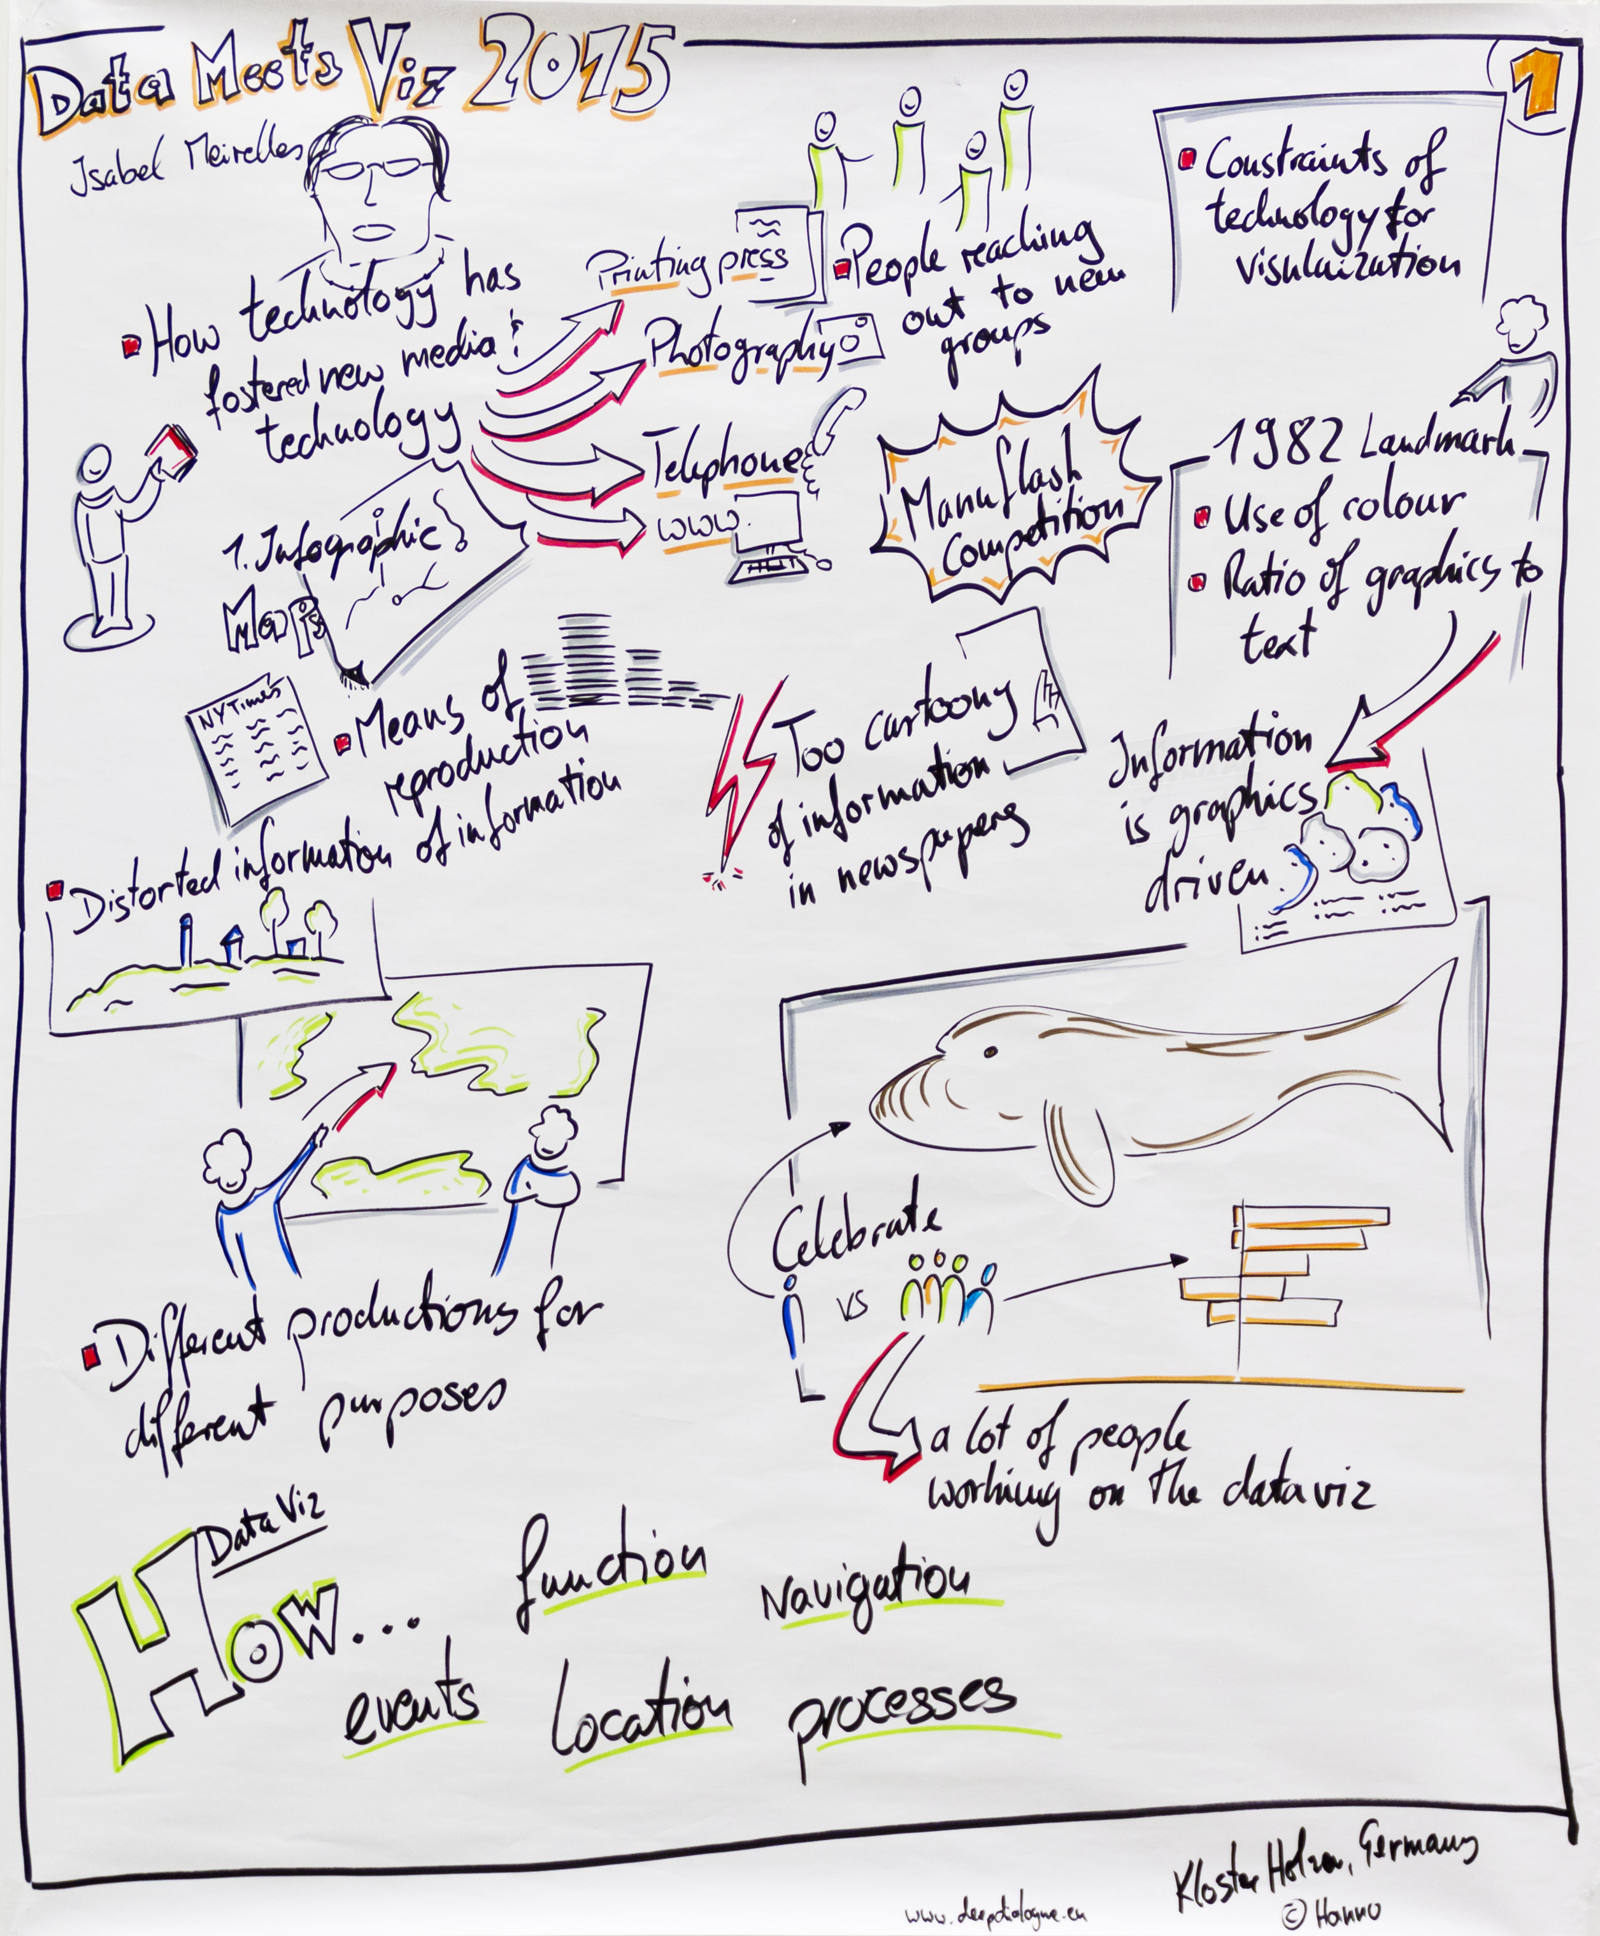 Data Meets Viz 2015
1
Isabel Meirelles
How technology has
fostered new media &
technology
Printing press
Photography
Telephone
www.
People reaching
out to new
groups
Constraints of
technology for
visulaization
1. Infographic
Maps
Manuflash
Competition
1982 Landmark
Use of colour
Ratio of graphics to
text
NYTimes
Means of
reproduction
of information
Too cartoony
of information
in newspapers
Information
is graphics
driven
Distorted information
Different productions for
different purposes
Celebrate
vs
a lot of people
working on the dataviz
Data Viz
How...
function
Navigation
events
Location
processes
Kloster Holzen, Germany
© Hanno
www.deepdialogue.eu